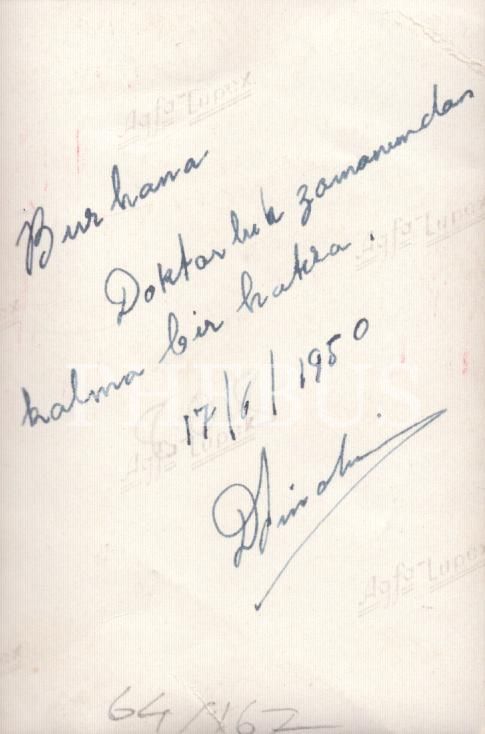 Burhana
Doktorluk zamanından
kalma bir hatıra.
17/6/1950
PHEBUS
Agfa-Lupex
Agfa-Lupex
Agfa-Lupex
Agfa-Lupex
64/162